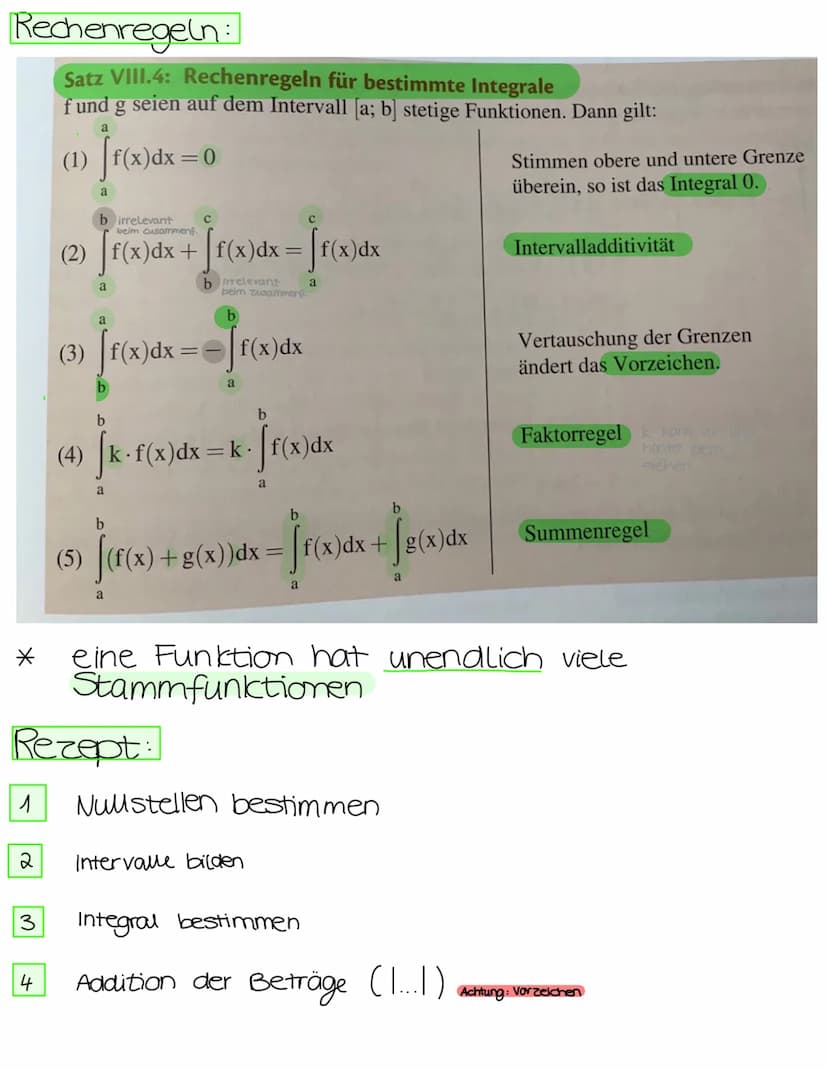 Rechenregeln:
Satz VIII.4: Rechenregeln für bestimmte Integrale
f und g seien auf dem Intervall [a; b] stetige Funktionen. Dann gilt:
(1) ∫ₐᵃ f(x)dx = 0
Stimmen obere und untere Grenze
überein, so ist das Integral 0.
irrelevant
beim zusammenf.
(2) ∫ₐᵇ f(x)dx + ∫_b^c f(x)dx = ∫ₐᶜ f(x)dx
Intervalladditivität
irrelevant
beim zusammenf.
(3) ∫_b^a f(x)dx = − ∫ₐᵇ f(x)dx
Vertauschung der Grenzen
ändert das Vorzeichen.
(4) ∫ₐᵇ k · f(x)dx = k · ∫ₐᵇ f(x)dx
Faktorregel
(5) ∫ₐᵇ (f(x) + g(x))dx = ∫ₐᵇ f(x)dx + ∫ₐᵇ g(x)dx
Summenregel
* eine Funktion hat unendlich viele
Stammfunktionen
Rezept:
1 Nullstellen bestimmen
2 Intervalle bilden
3 Integral bestimmen
4 Addition der Beträge (|...|) Achtung: Vorzeichen